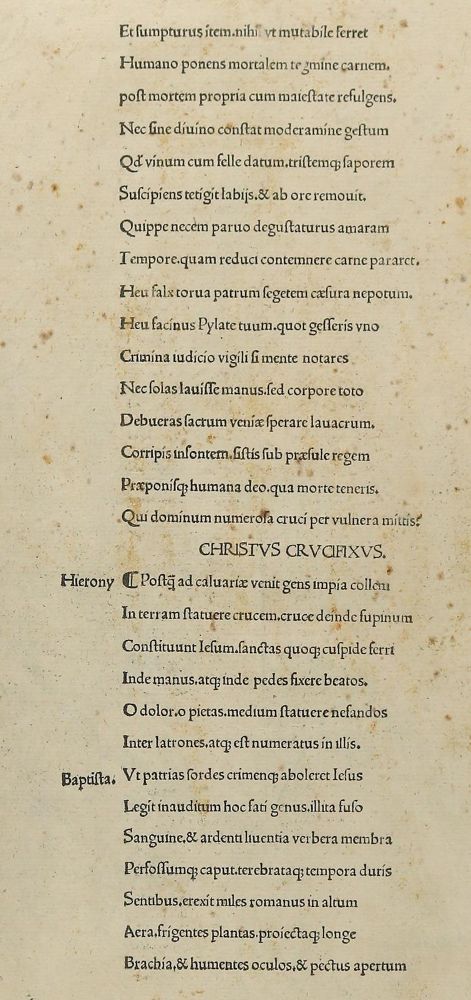 Et sumpturus item.nihil vt mutabile ferret
Humano ponens mortalem tegmine carnem.
post mortem propria cum maiestate refulgens.
Nec sine diuino constat moderamine gestum
Qđ vinum cum felle datum.tristemq; saporem
Suscipiens tetigit labijs.& ab ore remouit.
Quippe necem paruo degustaturus amaram
Tempore.quam reduci contemnere carne pararet.
Heu falx torua patrum segetem cæsura nepotum.
Heu facinus Pylate tuum.quot gesseris vno
Crimina iudicio vigili si mente notares
Nec solas lauisse manus.sed corpore toto
Debueras sacrum veniæ sperare lauacrum.
Corripis insontem.sistis sub præsule regem
Præponisq; humana deo.qua morte teneris.
Qui dominum numerosa cruci per vulnera mittis?
CHRISTVS CRVCIFIXVS.
Hierony ¶ Postq̃ ad caluariæ venit gens impia collem
In terram statuere crucem.cruce deinde supinum
Constituunt Iesum.sanctas quoq; cuspide ferri
Inde manus.atq; inde pedes fixere beatos.
O dolor.o pietas.medium statuere nefandos
Inter latrones.atq; est numeratus in illis.
Baptista. Vt patrias sordes crimenq; aboleret Iesus
Legit inauditum hoc fati genus.illita fuso
Sanguine.& ardenti liuentia verbera membra
Perfossumq; caput.terebrataq; tempora duris
Sentibus.erexit miles romanus in altum
Aera.frigentes plantas.proiectaq; longe
Brachia.& humentes oculos.& pectus apertum